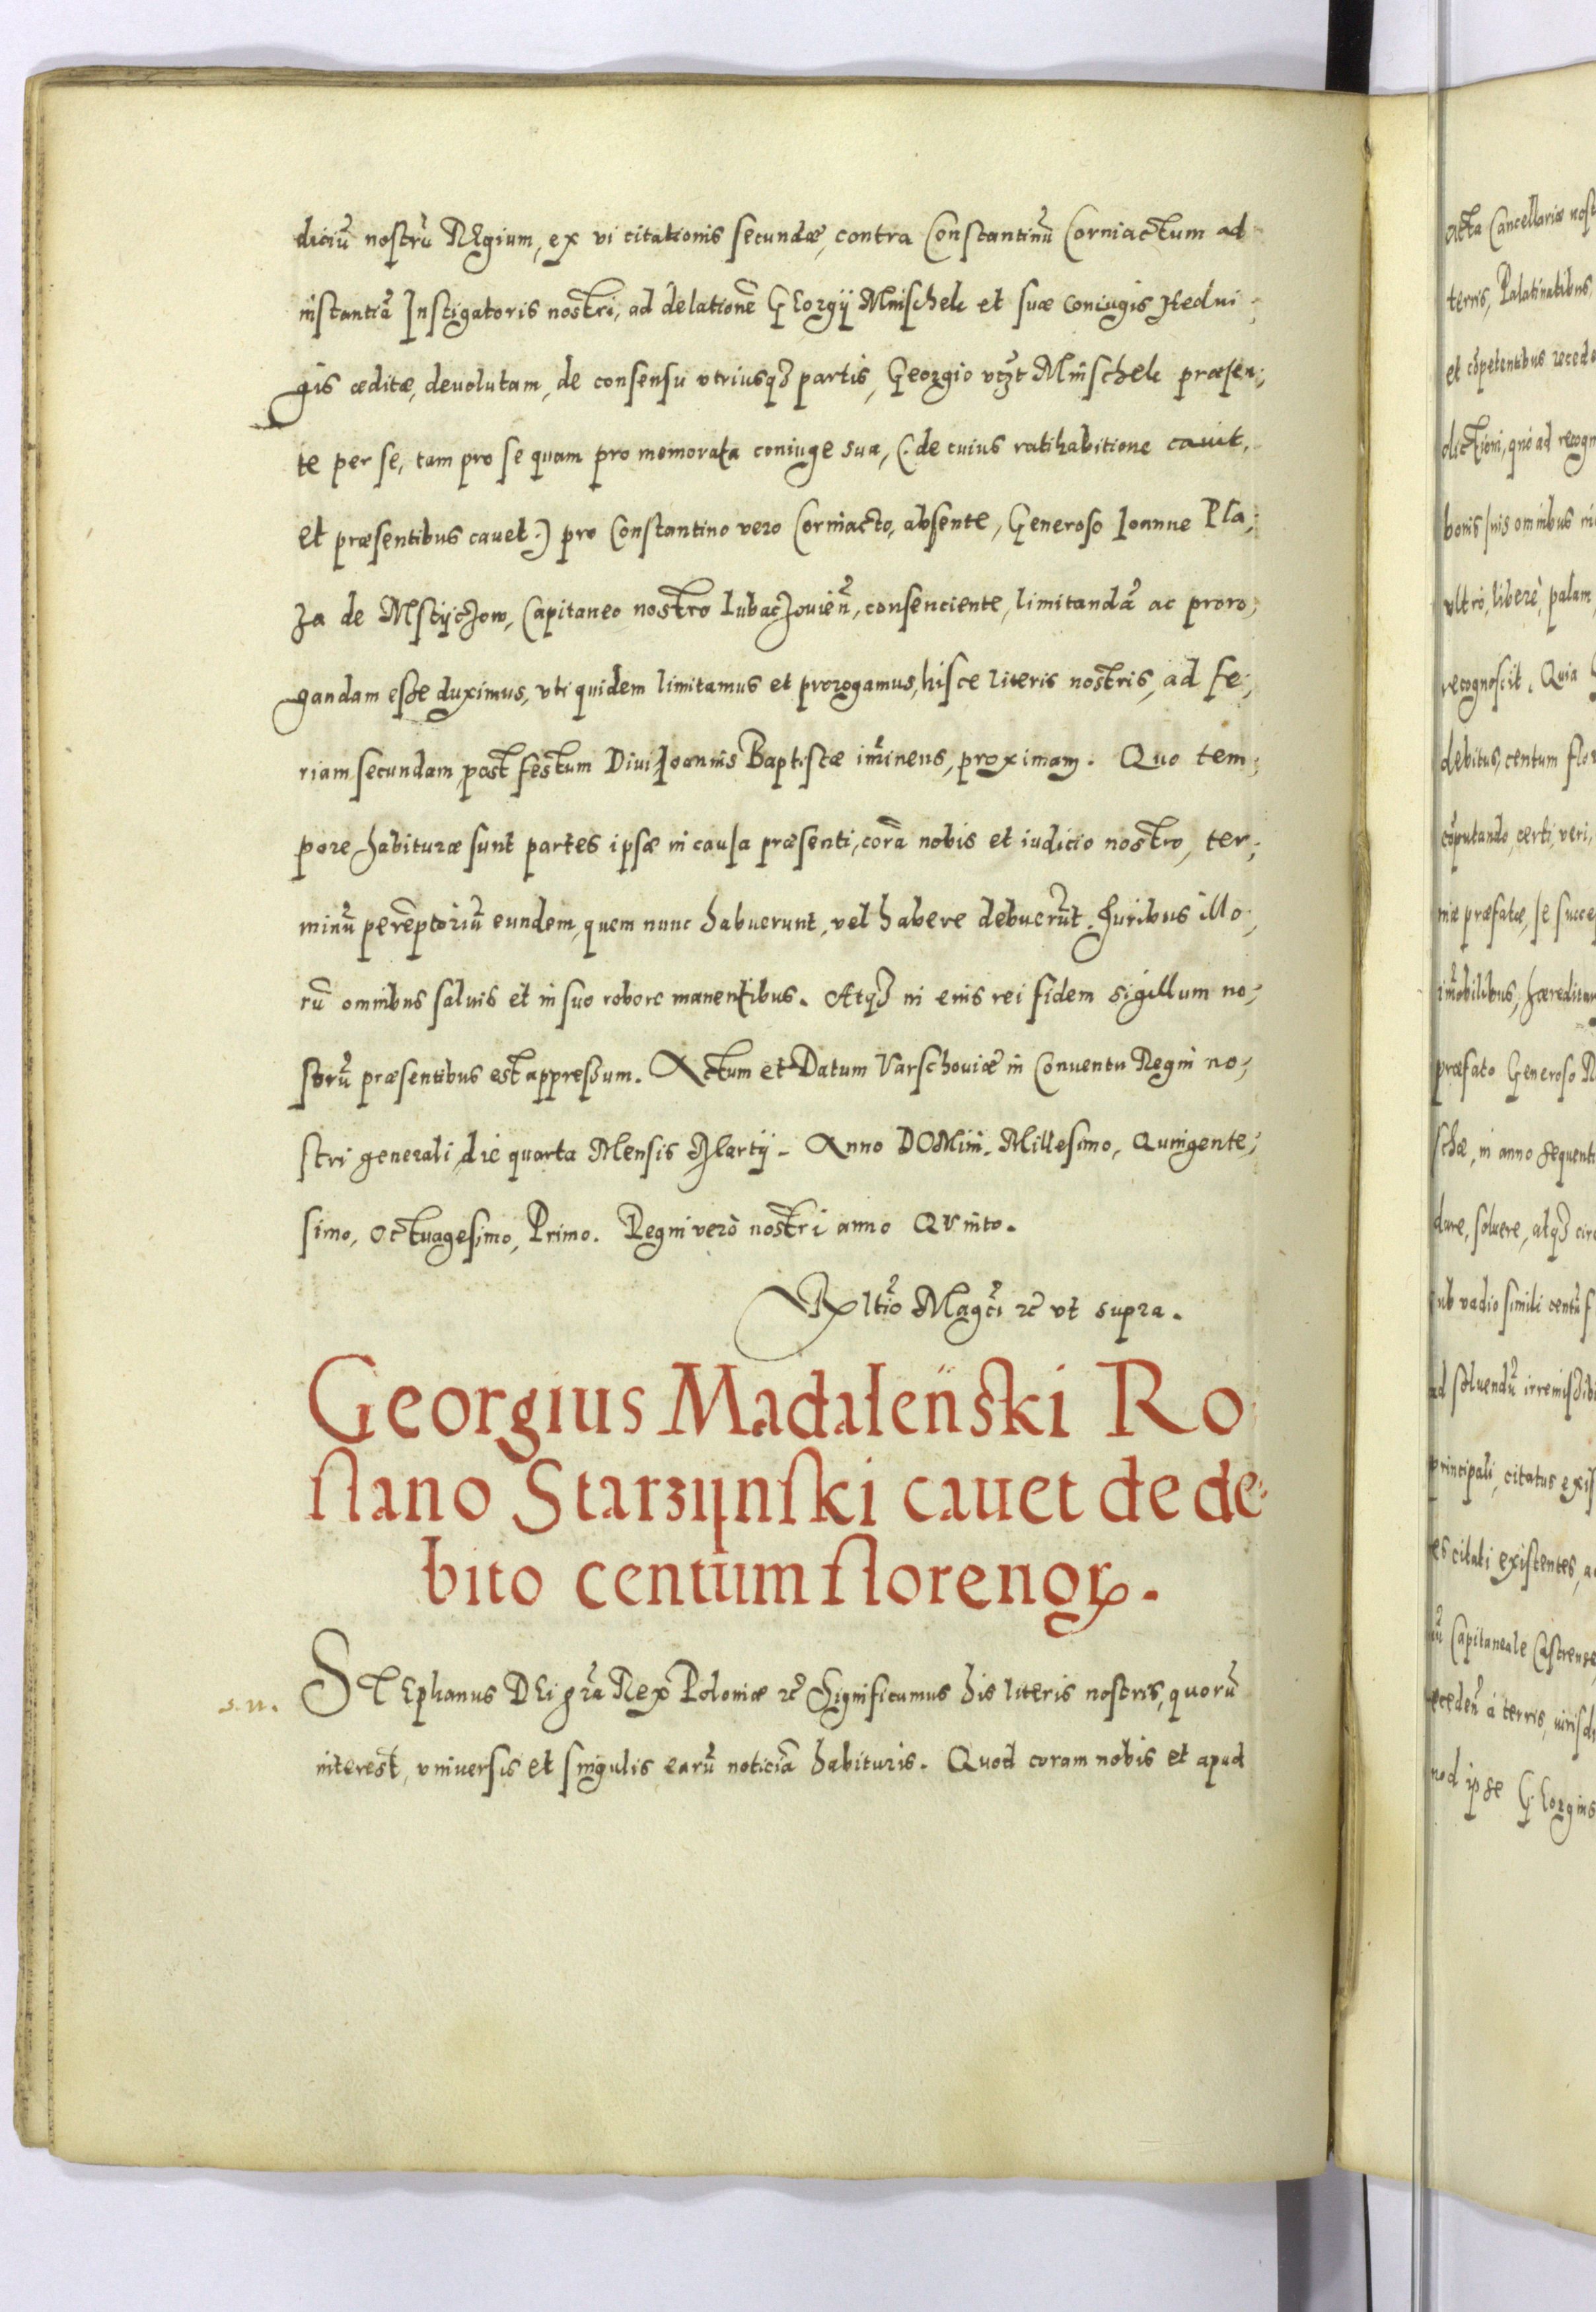 diciũ nostrũ REgium, ex vi citationis secundæ, contra Constantinũ Corniactum ad
instantiã Instigatoris nostri, ad delationẽ GEorgij Mnischek et suæ coniugis Hedui-
gis æditæ, deuolutam, de consensu vtriusq3 partis, Georgio vtzt Mnischek præsen-
te per se, tam pro se quam pro memorata coniuge sua, (: de cuius ratihabitione cauit,
et præsentibus cauet :) pro Constantino vero Corniacto, absente, Generoso Ioanne Pla-
za de Mstijczow, Capitaneo nostro Lubaczouien̄, consenciente, limitandã ac proro-
gandam esse duximus, vti quidem limitamus et prorogamus, hisce literis nostris, ad fe-
riam secundam, post festum Diui Ioannis Baptistæ im̃inens, proximam. Quo tem-
pore habituræ sunt partes ipsæ in causa præsenti, corã nobis et iudicio nostro, ter-
minũ perẽptoriũ eundem, quem nunc habuerunt, vel habere debuerũt. Iuribus illo-
rũ omnibus saluis et in suo robore manentibus. Atq3 in eius rei fidem sigillum no-
strũ præsentibus est appressum. Actum et Datum Varschouiæ in Conuentu Regni no-
stri generali die quarta Mensis Martij. Anno DOMini. Millesimo, Quingente-
simo, Octuagesimo, Primo. Regni verò nostri anno QVinto.
Rltĩo Magc̃i &c̃ vt supra.
Georgius Madaleński Ro-
slano Starzijnski cauet de de-
bito centum florenoꝝ.
s. n.
STEphanus DEi gr̃a Rex Poloniæ &c̃ Significamus his literis nostris, quorũ
interest, vniuersis et singulis, earũ noticiã habituris. Quod coram nobis et apud
Acta Cancellariæ
terris, Palatinatibus,
et cõpetentibus
bonis suis omnibus
vltrò, liberè, palam,
recognoscit. Quia
debitus, centum
cõputando, certi, veri,
niæ præfatæ, se
im̃obilibus,
præfato Generoso
schæ, in anno sequenti
dare, soluere, atq3
sub vadio simili centũ
ad soluendũ
principali, citatus
citati existentes,
Capitaneale Castrense
à terris,
ipse GEorgius